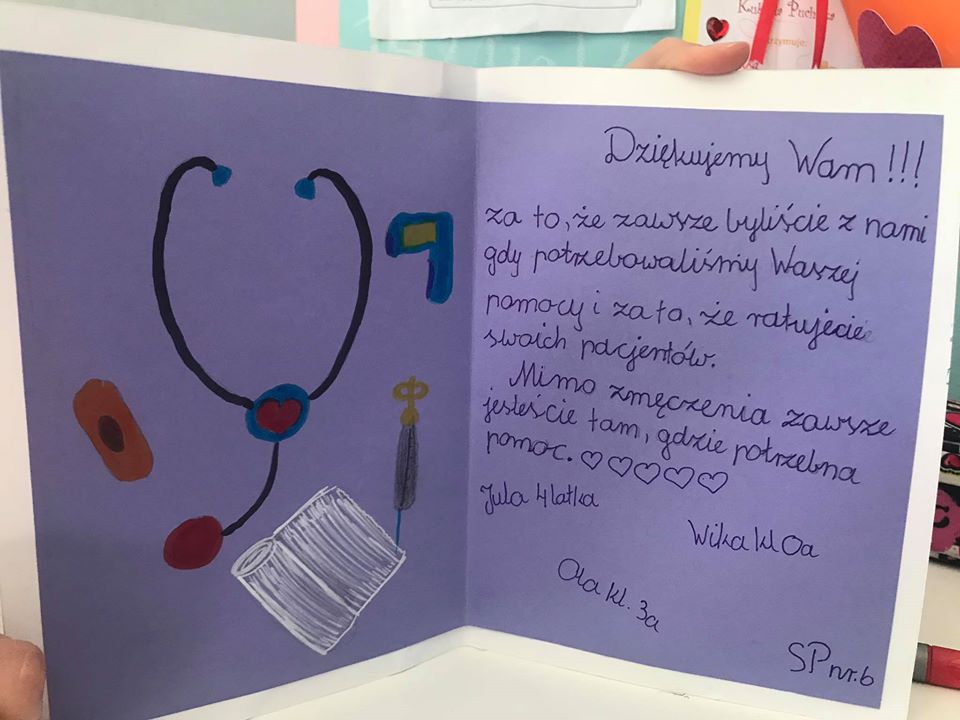 Dziękujemy Wam!!!
za to, że zawsze byliście z nami
gdy potrzebowaliśmy Waszej
pomocy i za to, że ratujecie
swoich pacjentów.
Mimo zmęczenia zawsze
jesteście tam, gdzie potrzebna
pomoc. ♡♡♡♡♡
Jula 4latka
Wika kl 0a
Ola kl. 3a
SP nr. 6